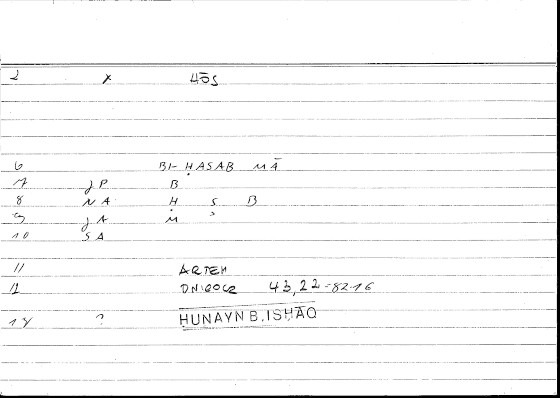 2 x HŌS
6 BI-ḤASAB MĀ
7 JP B
8 NA Ḥ S B
9 JA M ʾ
10 SA
11 ARTEM
12 43,22=82.16
14 ? ḤUNAYN B. ISḤĀQ